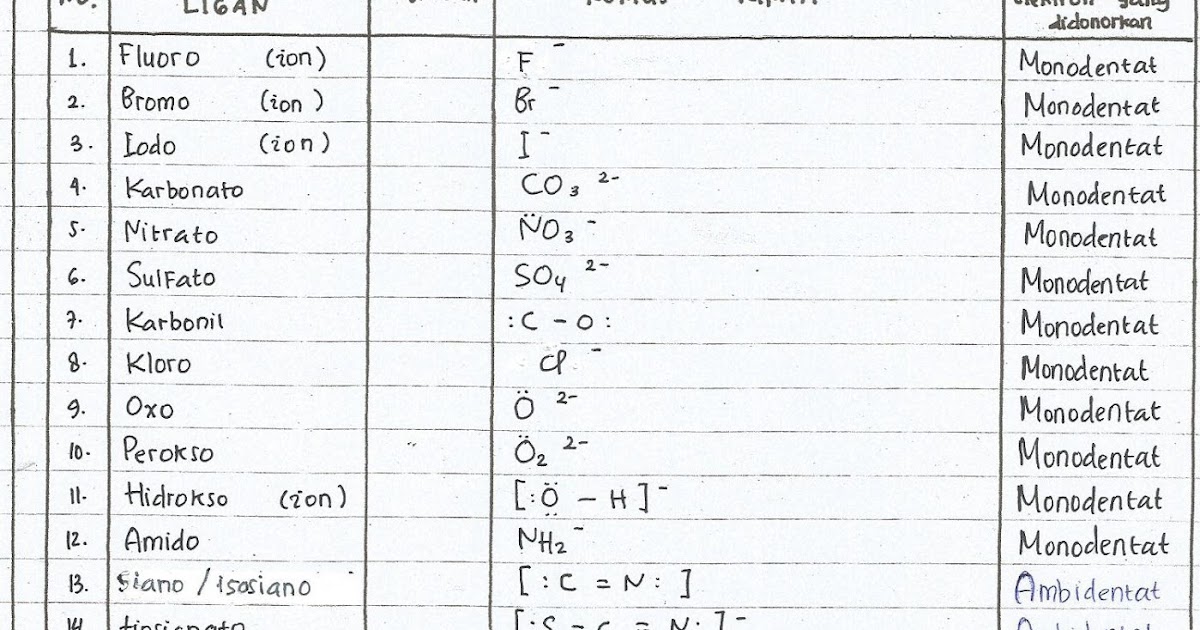 No. LIGAN
elektron yang
didonorkan
1. Fluoro (ion) F⁻ Monodentat
2. Bromo (ion) Br⁻ Monodentat
3. Iodo (ion) I⁻ Monodentat
4. Karbonato CO₃ ²⁻ Monodentat
5. Nitrato N̈O₃⁻ Monodentat
6. Sulfato SO₄ ²⁻ Monodentat
7. Karbonil :C – O: Monodentat
8. Kloro Cl⁻ Monodentat
9. Oxo Ö ²⁻ Monodentat
10. Perokso Ö₂ ²⁻ Monodentat
11. Hidrokso (ion) [:Ö – H]⁻ Monodentat
12. Amido NH₂⁻ Monodentat
13. Siano / Isosiano [:C = N:] Ambidentat
14 [:S – C = N:]⁻